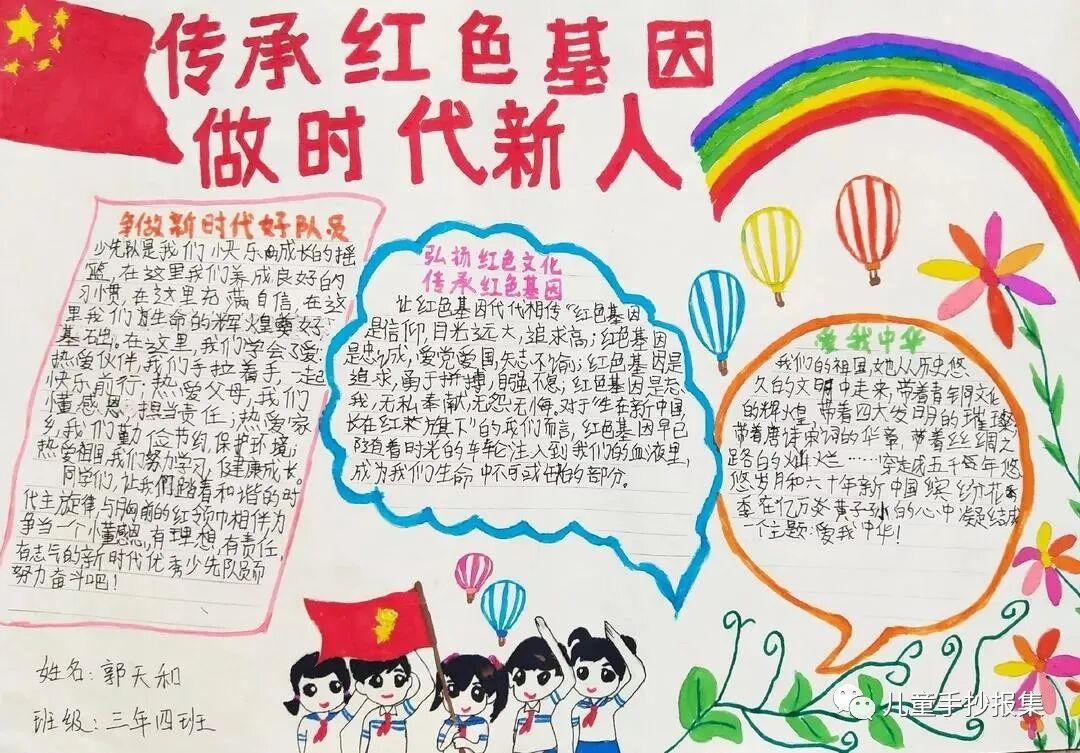 传承红色基因
做时代新人
争做新时代好队员
少先队是我们快乐成长的摇
篮,在这里我们养成良好的
习惯,在这里充满自信,在这
里我们为生命的辉煌奠好
基础。在这里,我们学会了爱:
热爱伙伴,我们手拉着手,一起
快乐前行;热爱父母,我们
懂感恩、担当责任;热爱家
乡,我们勤俭节约,保护环境;
热爱祖国,我们努力学习,健康成长。
同学们,让我们踏着和谐的时
代主旋律与胸前的红领巾相伴为
争当一个懂感恩,有理想,有责任,
有志气的新时代优秀少先队员而
努力奋斗吧!
弘扬红色文化
传承红色基因
让红色基因代代相传"红色基因
是信仰,目光远大,追求高;红色基因
是忠诚,爱党爱国,矢志不渝;红色基因是
追求,勇于拼搏,自强不息;红色基因是忘
我,无私奉献,无怨无悔。对于"生在新中国
长在红旗下"的我们而言,红色基因早已
随着时光的车轮注入到我们的血液里,
成为我们生命中不可或缺的部分。
爱我中华
我们的祖国,她从历史悠
久的文明中走来,带着青铜文化
的辉煌,带着四大发明的璀璨,
带着唐诗宋词的华章,带着丝绸之
路的灿烂……穿走成五千年悠
悠岁月和六十年新中国缤纷花
季在亿万炎黄子孙的心中凝结成
一个主题:爱我中华!
姓名:郭天和
班级:三年四班
儿童手抄报集